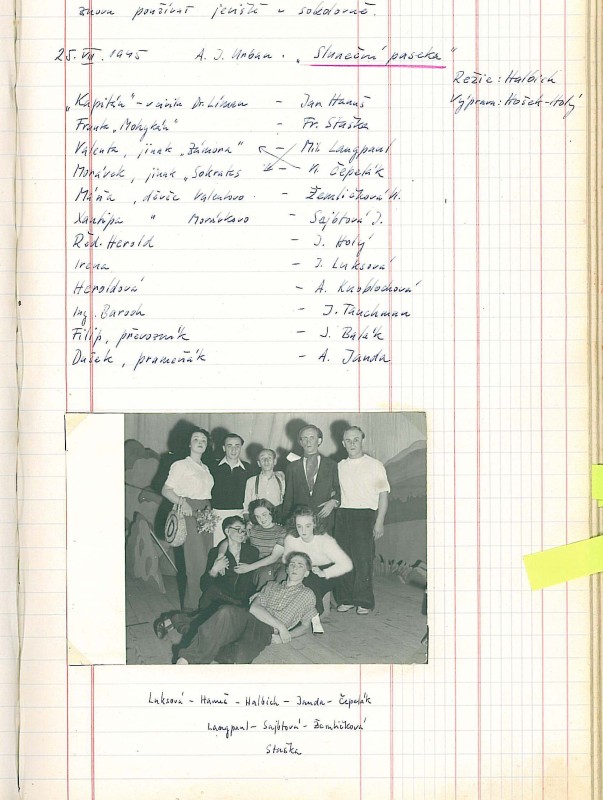 znova používat jeviště v sokolovně.
25. VII. 1945 A. J. Urban. „Sluneční paseka"
Režie: Halbich
Výprava: Hošek-Holý
„Kapitán" - Dr. Liman - Jan Hanuš
Franta „Mohykán" - Fr. Staška
Valenta, jinak „Zámora" - Mil. Langpaul
Morávek, jinak „Sokrates - Vl. Čepelák
Máňa, děvče Valentovo - Žemličková Vl.
Xantipa " Morávkovo - Sajbtová J.
Red. Herold - J. Holý
Irena - J. Luksová
Heroldová - A. Knoblochová
Ing. Baroch - J. Tauchman
Filip, převozník - J. Balák
Dušek, prameňák - A. Janda
Luksová - Hanuš - Halbich - Janda - Čepelák
Langpaul - Sajbtová - Žemličková
Staška